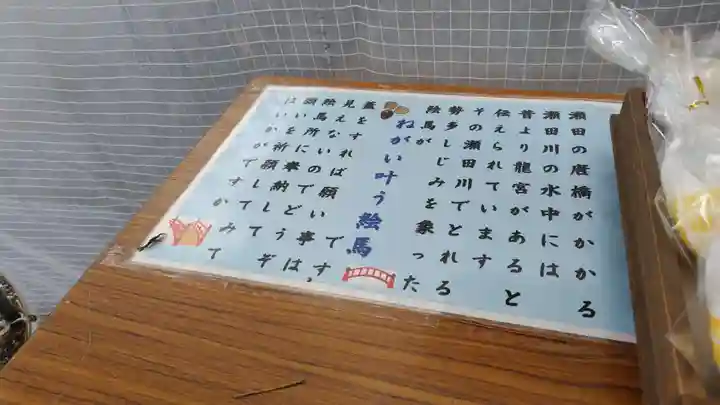 瀬田の唐橋がかかる
瀬田川の水中には
昔より龍宮があると
伝えられています
その瀬田川でとれる
勢多しじみを象った
絵馬が
ねがい叶う絵馬
蓋をすれば願い事は、
見えないのです
絵馬所に奉納どうぞ
願いを祈願してみて
はいかがですか